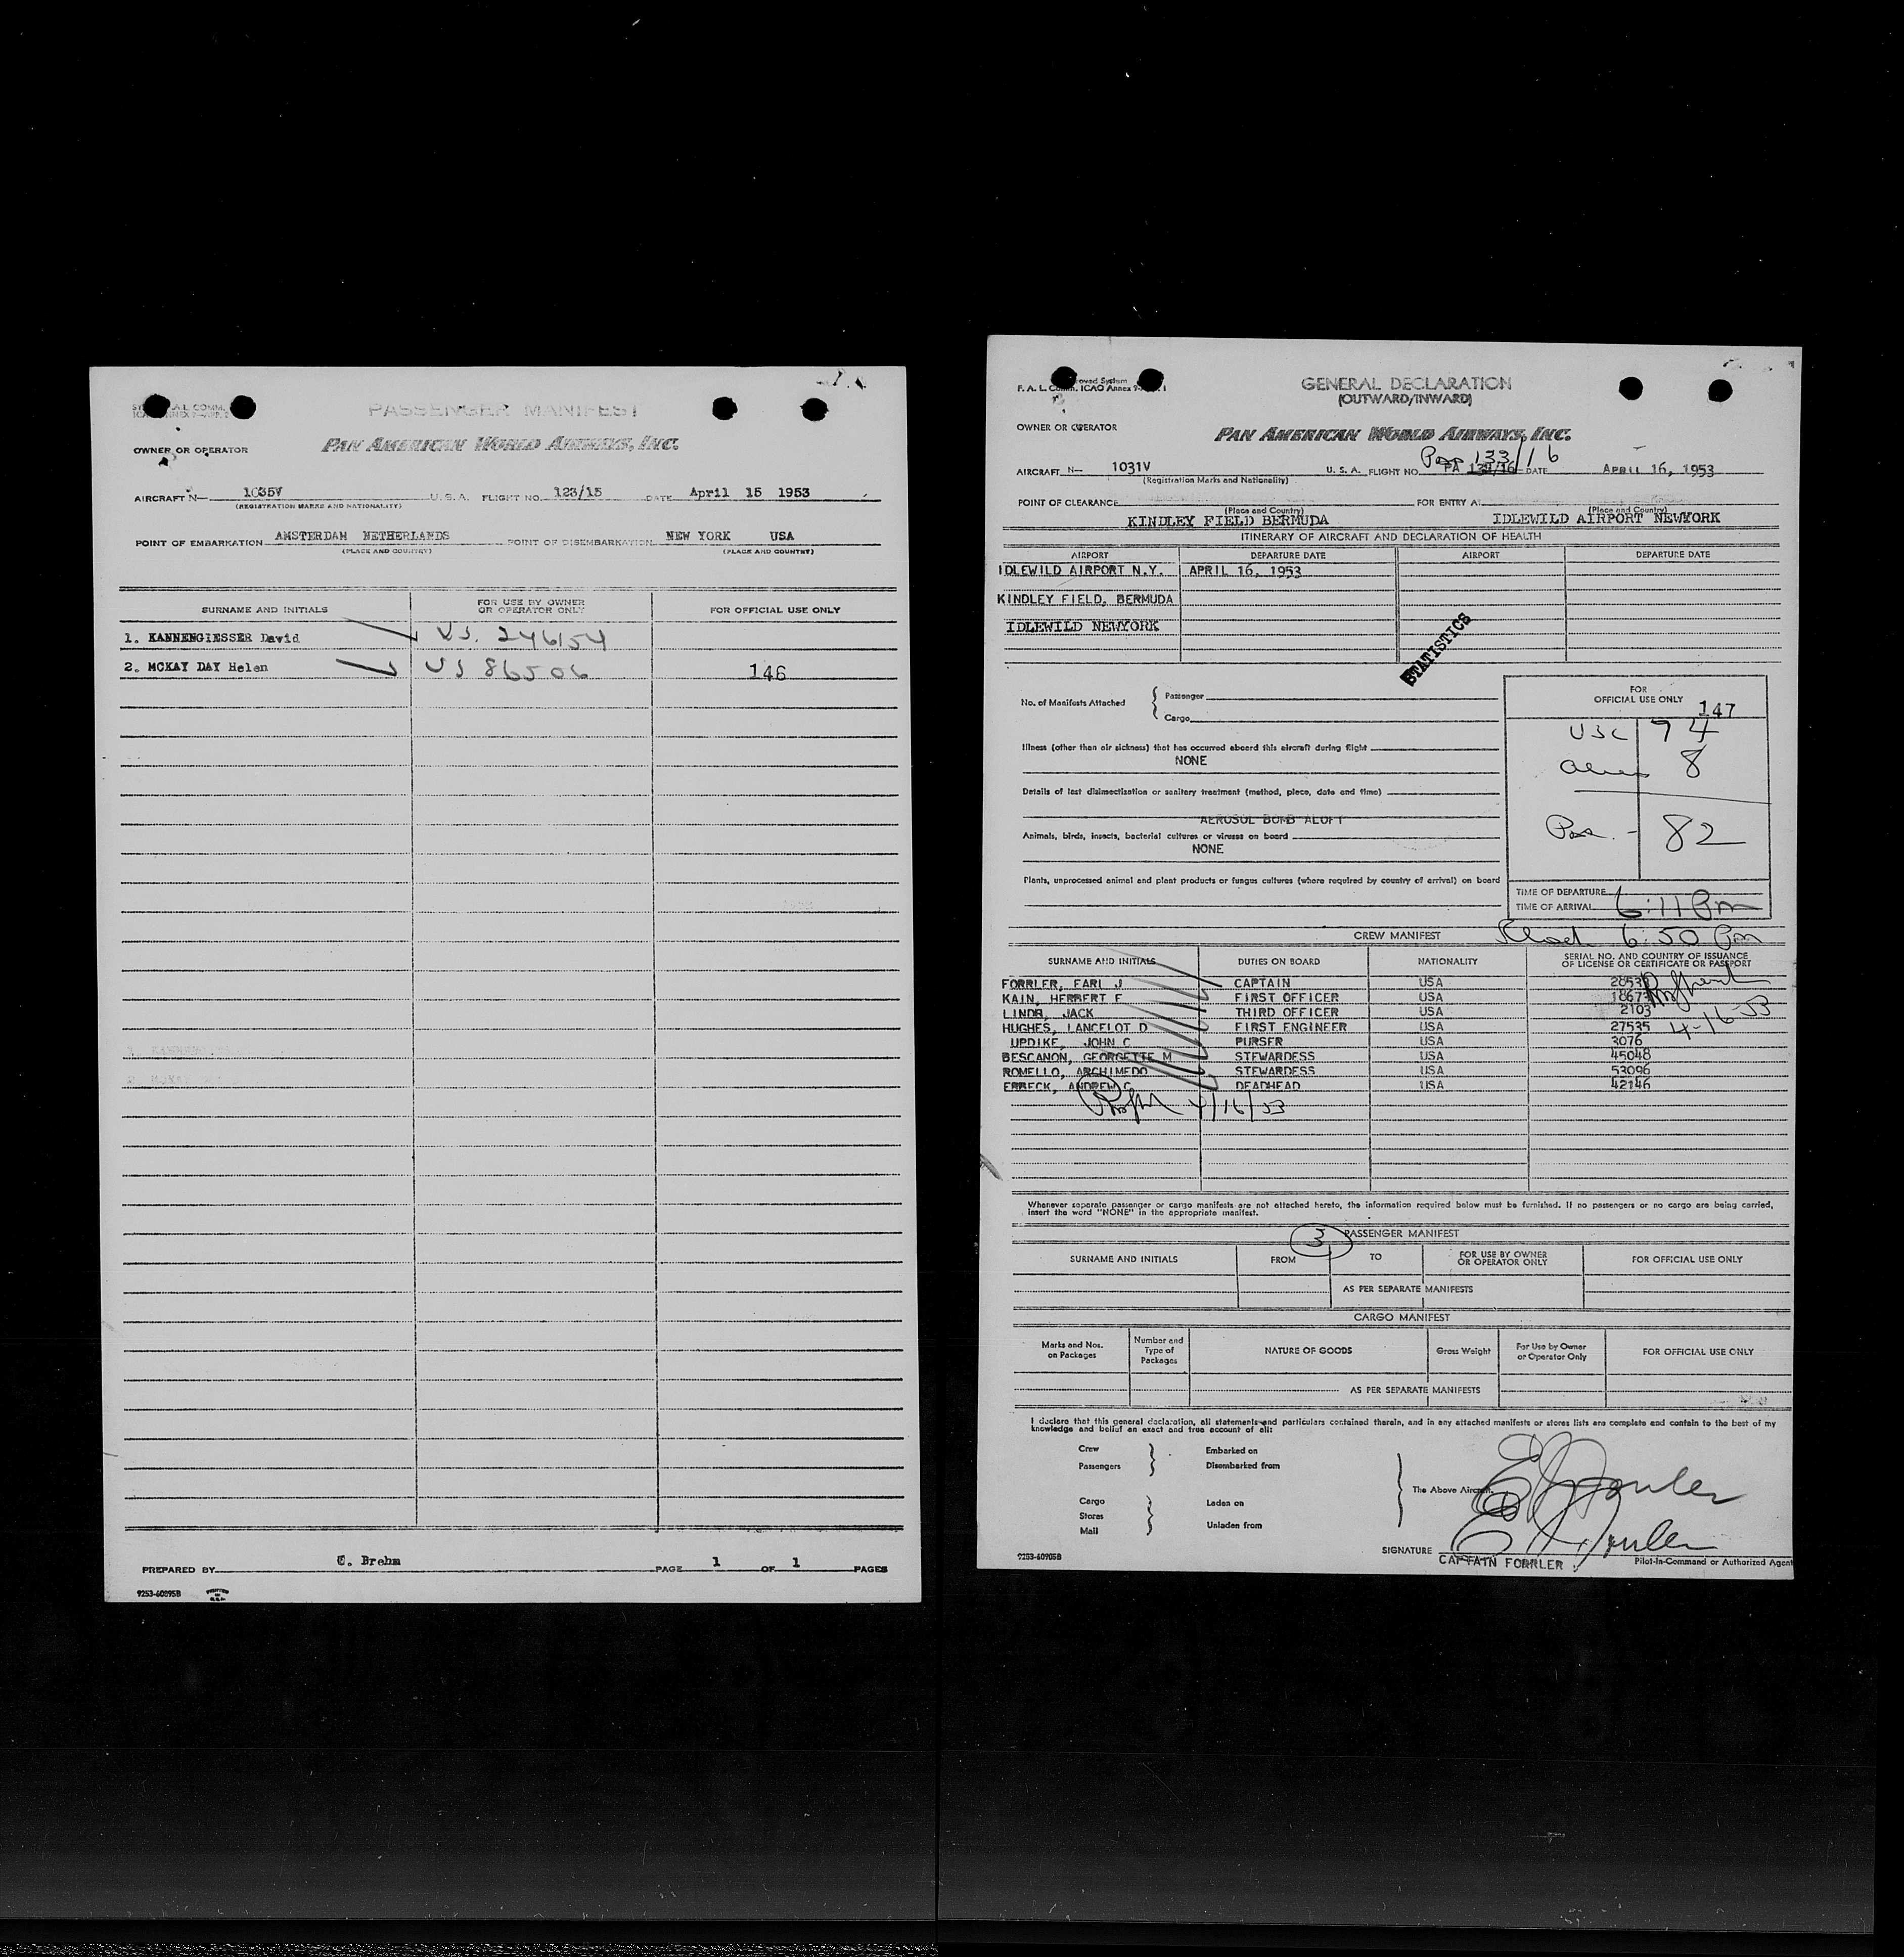 PASSENGER MANIFEST
OWNER OR OPERATOR
PAN AMERICAN WORLD AIRWAYS, INC.
AIRCRAFT N— 1035V U. S. A. FLIGHT NO. 123/15 DATE April 15 1953
(REGISTRATION MARKS AND NATIONALITY)
POINT OF EMBARKATION AMSTERDAM NETHERLANDS POINT OF DISEMBARKATION NEW YORK USA
(PLACE AND COUNTRY) (PLACE AND COUNTRY)
SURNAME AND INITIALS FOR USE BY OWNER OR OPERATOR ONLY FOR OFFICIAL USE ONLY
1. KANNENGIESSER David US. 246154
2. MCKAY DAY Helen US 86506 146
PREPARED BY C. Brehm PAGE 1 OF 1 PAGES
9253-60895B
GENERAL DECLARATION
(OUTWARD/INWARD)
F. A. L. ICAO Annex
OWNER OR OPERATOR
PAN AMERICAN WORLD AIRWAYS, INC.
Paa 133/16
AIRCRAFT N— 1031V U. S. A. FLIGHT NO. PA DATE APRIL 16, 1953
(Registration Marks and Nationality)
POINT OF CLEARANCE FOR ENTRY AT
(Place and Country) (Place and Country)
KINDLEY FIELD BERMUDA IDLEWILD AIRPORT NEWYORK
ITINERARY OF AIRCRAFT AND DECLARATION OF HEALTH
AIRPORT DEPARTURE DATE AIRPORT DEPARTURE DATE
IDLEWILD AIRPORT N.Y. APRIL 16, 1953
KINDLEY FIELD, BERMUDA
IDLEWILD NEWYORK
STATISTICS
No. of Manifests Attached Passenger
Cargo
FOR
OFFICIAL USE ONLY 147
USC 74
8
82
Illness (other than air sickness) that has occurred aboard this aircraft during flight
NONE
Details of last disinsectization or sanitary treatment (method, place, date and time)
AEROSOL BOMB ALOFT
Animals, birds, insects, bacterial cultures or viruses on board
NONE
Plants, unprocessed animal and plant products or fungus cultures (where required by country of arrival) on board
TIME OF DEPARTURE
TIME OF ARRIVAL 6:11 Pm
CREW MANIFEST 6:50 Pm
SURNAME AND INITIALS DUTIES ON BOARD NATIONALITY SERIAL NO. AND COUNTRY OF ISSUANCE OF LICENSE OR CERTIFICATE OR PASSPORT
FORRLER, EARL J CAPTAIN USA
KAIN, HERBERT F FIRST OFFICER USA
LINDR, JACK THIRD OFFICER USA 2103
HUGHES, LANCELOT D FIRST ENGINEER USA 27535
4-16-53
UPDIKE, JOHN C PURSER USA 3076
BESCANON, GEORGETTE M STEWARDESS USA 45048
ROMELLO, ARCHIMEDO STEWARDESS USA 53096
ERBECK, ANDREW C DEADHEAD USA 42146
4/16/53
Whenever separate passenger or cargo manifests are not attached hereto, the information required below must be furnished. If no passengers or no cargo are being carried,
insert the word "NONE" in the appropriate manifest.
3 PASSENGER MANIFEST
SURNAME AND INITIALS FROM TO FOR USE BY OWNER OR OPERATOR ONLY FOR OFFICIAL USE ONLY
AS PER SEPARATE MANIFESTS
CARGO MANIFEST
Marks and Nos. on Packages Number and Type of Packages NATURE OF GOODS Gross Weight For Use by Owner or Operator Only FOR OFFICIAL USE ONLY
AS PER SEPARATE MANIFESTS
I declare that this general declaration, all statements and particulars contained therein, and in any attached manifests or stores lists are complete and contain to the best of my
knowledge and belief an exact and true account of all:
Crew Embarked on
Passengers Disembarked from
The Above Aircraft.
Cargo Laden on
Stores
Mail Unladen from
SIGNATURE
CAPTAIN FORRLER Pilot-in-Command or Authorized Agent
9253-60905B